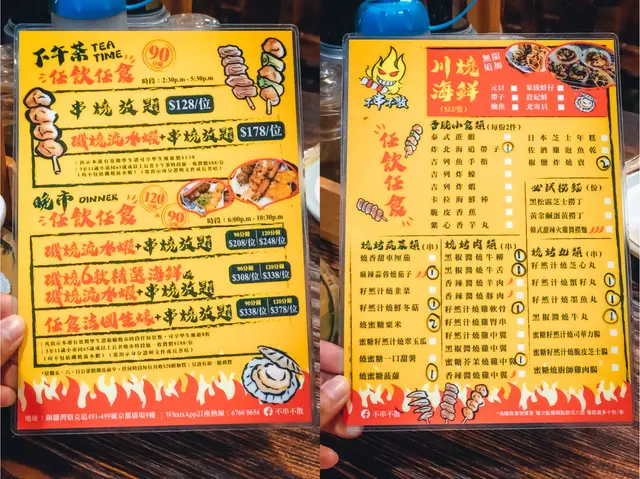 下午茶 TEA TIME
90分鐘
任飲任食
時段：2:30p.m - 5:30p.m
串燒放題 $128/位
磯燒流水蝦+串燒放題 $178/位
晚市 DINNER
任飲任食
120分鐘
90分鐘
時段：6:00p.m - 10:30p.m
90分鐘 120分鐘
磯燒流水蝦+串燒放題 $208/位 $248/位
磯燒6款精選海鮮&
磯燒流水蝦+串燒放題
90分鐘 120分鐘
$308/位 $338/位
90分鐘 120分鐘
任食法國生蠔+串燒放題 $338/位 $378/位
地址：銅鑼灣駱克道491-499號京都廣場9樓 | WhatsApp訂座熱線：6760 8656 不串不散
不串不散
川燒海鮮
無限追加
元貝
帶子
鮑魚
象拔鮮仔
貴妃鮮
北寄貝
任飲任食
香燒小食類 (每份2件)
泰式蔗蝦
炸北海道帶子 1
吉列魚手指
吉列炸蠔
吉列炸蝦
卡拉海鮮棒
脆皮香蕉
紫心番芋丸
日本芝士年糕
佐酒雞泡魚乾
椒鹽炸燒賣 2
必試撈麵 (份)
黑松露芝士撈丁
黃金鹹蛋黃撈丁
韓式甜辣火雞醬撈麵
燒烤蔬菜類 (串)
燒香甜車厘茄
麻辣蒜蓉燒茄子 1
籽然汁燒韭菜
籽然汁燒鮮冬菇 1
燒蜜糖粟米 2
蜜糖汁燒翠玉瓜
蜜糖燒一口甜薯 1
蜜糖燒菠蘿
燒烤肉類 (串)
黑椒醬燒牛柳 1
黑椒醬燒牛舌 1
香辣醬燒羊肉
香辣醬燒豚肉
籽然汁燒雞軟骨 1
籽然汁燒雞腎
黑椒醬燒雞中翼
蜜糖芥菜燒雞中翼 1
香辣醬燒雞中翼
燒烤丸類 (串)
籽然汁燒芝心丸
籽然汁燒蟹籽丸 1
籽然汁燒墨魚丸 1
籽然汁燒牛丸
蜜糖汁燒司華力腸
蜜糖汁燒脆皮芝士腸
蜜糖燒廚師雞肉腸